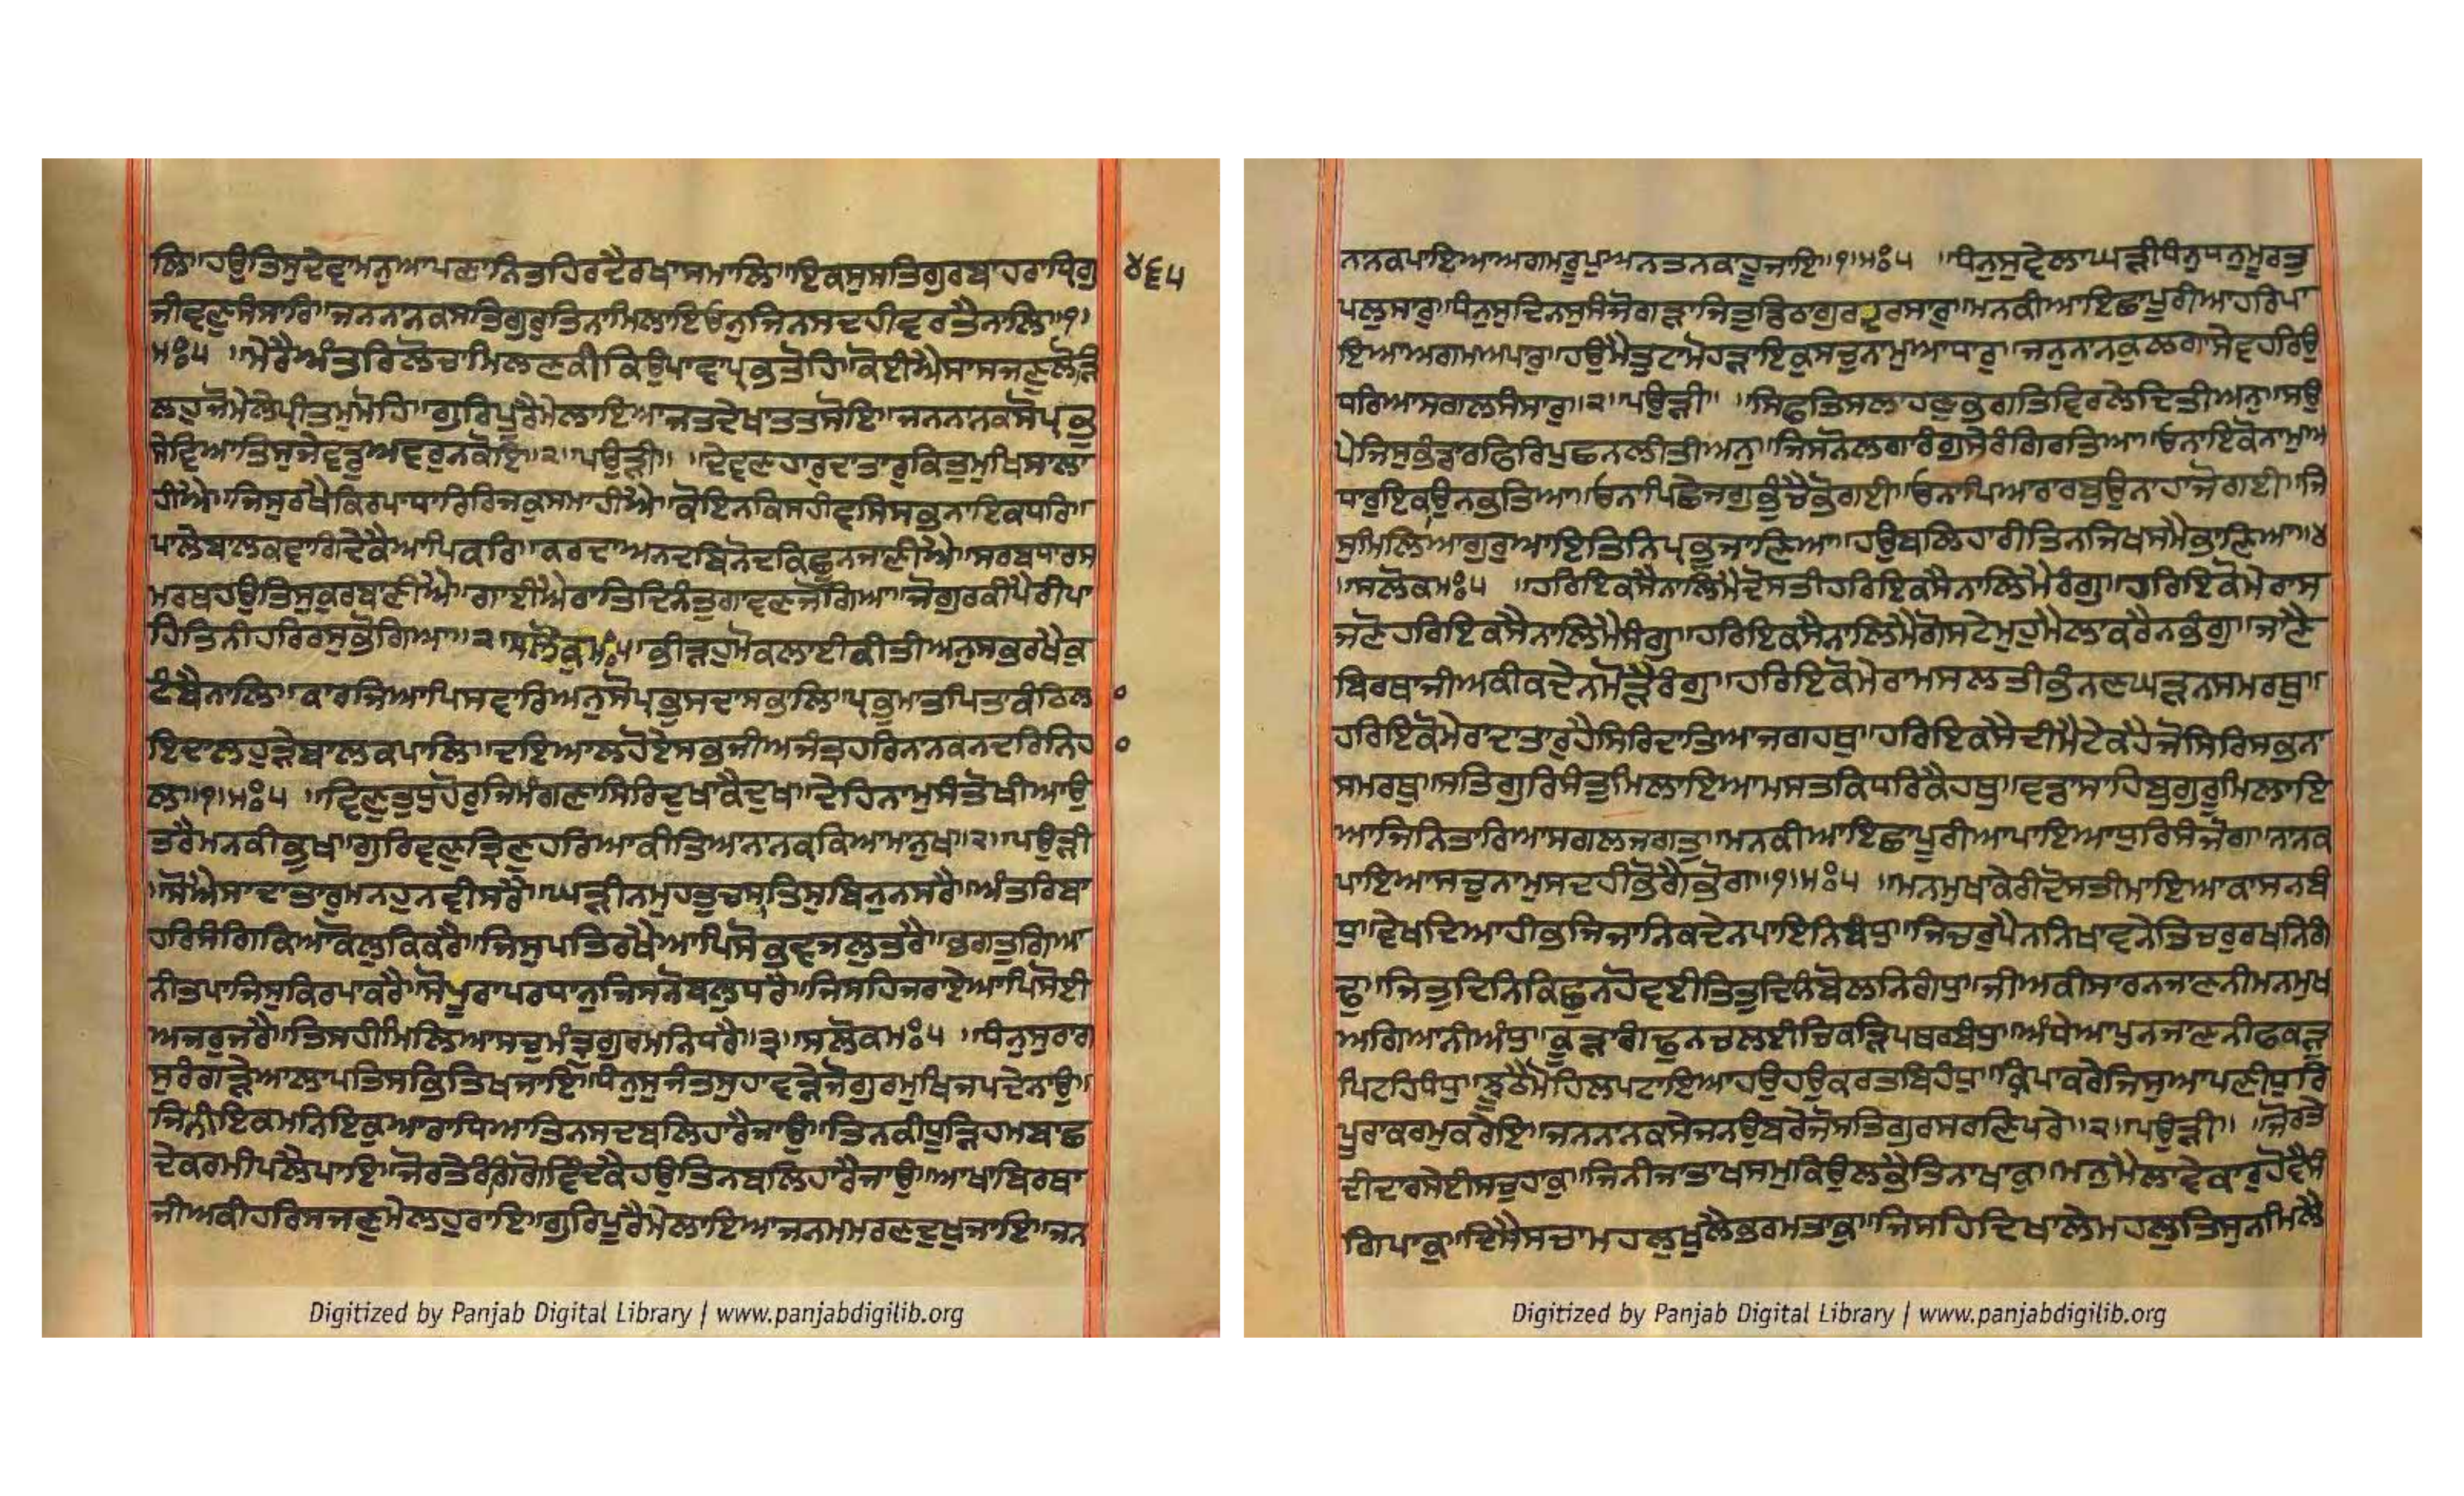 ਲਿ॥ਹਉਤਿਸੁਦੇਵਾਮਨੁਆਪਣਾਨਿਤਹਿਰਦੈਰਖਾਸਮਾਲਿ॥ਇਕਸੁਸਤਿਗੁਰਬਾਹਰਾਧ੍ਰਿਗੁ
ਜੀਵਣੁਸੰਸਾਰਿ॥ਜਨਨਾਨਕਸਤਿਗੁਰੁਤਿਨਾਮਿਲਾਇਓਨੁਜਿਨਸਦਹੀਵਰਤੈਨਾਲਿ॥੧॥
ਮਃ੫ ॥ਮੇਰੈਅੰਤਰਿਲੋਚਾਮਿਲਣਕੀਕਿਉਪਾਵਾਪ੍ਰਭਤੋਹਿ॥ਕੋਈਐਸਾਸਜਣੁਲੋੜਿ
ਲਹੁਜੋਮੇਲੇਪ੍ਰੀਤਮੁਮੋਹਿ॥ਗੁਰਿਪੂਰੈਮੇਲਾਇਆਜਤਦੇਖਾਤਤਸੋਇ॥ਜਨਨਾਨਕਸੋਪ੍ਰਭੁ
ਸੇਵਿਆਤਿਸੁਜੇਵਡੁਅਵਰੁਨਕੋਇ॥੨॥ਪਉੜੀ॥ ॥ਦੇਵਣਹਾਰੁਦਾਤਾਰੁਕਿਤੁਮੁਖਿਸਾਲਾ
ਹੀਐ॥ਜਿਸੁਰਖੈਕਿਰਪਾਧਾਰਿਰਿਜਕੁਸਮਾਹੀਐ॥ਕੋਇਨਕਿਸਹੀਵਸਿਸਭਨਾਇਕਧਰ॥
ਪਾਲੇਬਾਲਕਵਾਗਿਦੇਕੈਆਪਿਕਰ॥ਕਰਦਾਅਨਦਬਿਨੋਦਕਿਛੂਨਜਾਣੀਐ॥ਸਰਬਧਾਰਸ
ਮਰਥਹਉਤਿਸੁਕੁਰਬਾਣੀਐ॥ਗਾਈਐਰਾਤਿਦਿਨੰਤੁਗਾਵਣਜੋਗਿਆ॥ਜੋਗੁਰਕੀਪੈਰੀਪਾ
ਹਿਤਿਨੀਹਰਿਰਸੁਭੋਗਿਆ॥੨॥ਸਲੋਕੁਮਃ੫॥ਭੀੜਹੁਮੋਕਲਾਈਕੀਤੀਅਨੁਸਭਰਖੇਕੁ
ਟੰਬੈਨਾਲਿ॥ਕਾਰਜਿਆਪਿਸਵਾਰਿਅਨੁਸੋਪ੍ਰਭੁਸਦਾਸਭਾਲਿ॥ਪ੍ਰਭੁਮਾਤਪਿਤਾਕੰਠਿਲਾ
ਇਦਾਲਹੁੜੇਬਾਲਕਪਾਲਿ॥ਦਇਆਲਹੋਏਸਭਜੀਅਜੰਤ੍ਰਹਰਿਨਾਨਕਨਦਰਿਨਿਹਾ
ਲ॥੧॥ਮਃ੫ ॥ਵਿਣੁਤੁਧੁਹੋਰੁਜਿਮੰਗਣਾਸਿਰਿਦੁਖਾਕੈਦੁਖ॥ਦੇਹਿਨਾਮੁਸੰਤੋਖੀਆਉ
ਤਰੈਮਨਕੀਭੁਖ॥ਗੁਰਿਵਣੁਤਿਣੁਹਰਿਆਕੀਤਿਆਨਾਨਕਕਿਆਮਨੁਖ॥੨॥ਪਉੜੀ
॥ਸੋਐਸਾਦਾਤਾਰੁਮਨਹੁਨਵੀਸਰੈ॥ਘੜੀਨਮੁਹਤੁਚਸਾਤਿਸੁਬਿਨੁਨਸਰੈ॥ਅੰਤਰਿਬਾ
ਹਰਿਸੰਗਿਕਿਆਕੋਲੁਕਿਕਰੈ॥ਜਿਸੁਪਤਿਰਖੈਆਪਿਸੋਭਵਜਲੁਤਰੈ॥ਭਗਤੁਗਿਆ
ਨੀਤਪਾਜਿਸੁਕਿਰਪਾਕਰੈ॥ਸੋਪੂਰਾਪਰਧਾਨੁਜਿਸਨੋਬਲੁਧਰੈ॥ਜਿਸਹਿਜਰਾਏਆਪਿਸੋਈ
ਅਜਰੁਜਰੈ॥ਤਿਸਹੀਮਿਲਿਆਸਚੁਮੰਤ੍ਰੁਗੁਰਮਨਿਧਰੈ॥੩॥ਸਲੋਕਮਃ੫ ॥ਧੰਨੁਸੁਰਾਗ
ਸੁਰੰਗੜੇਆਲਾਪਤਿਸਭਤਿਖਜਾਇ॥ਧੰਨੁਸੁਜੰਤਸੁਹਾਵੜੇਜੋਗੁਰਮੁਖਿਜਪਦੇਨਾਉ॥
ਜਿਨੀਇਕਮਨਿਇਕੁਆਰਾਧਿਆਤਿਨਸਦਬਲਿਹਾਰੈਜਾਉ॥ਤਿਨਕੀਧੂੜਿਹਮਬਾਛ
ਦੇਕਰਮੀਪਲੈਪਾਇ॥ਜੋਰਤੇਰੰਗਿਗੋਵਿੰਦਕੈਹਉਤਿਨਬਲਿਹਾਰੈਜਾਉ॥ਆਖਾਬਿਰਥਾ
ਜੀਅਕੀਹਰਿਸਜਣੁਮੇਲਹੁਰਾਇ॥ਗੁਰਿਪੂਰੈਮੇਲਾਇਆਜਨਮਮਰਣਦੁਖੁਜਾਇ॥ਜਨ
੪੬੫
Digitized by Panjab Digital Library | www.panjabdigilib.org
ਨਾਨਕਪਾਇਆਅਗਮਰੂਪੁਅਨਤਨਕਾਹੂਜਾਇ॥੧॥ਮਃ੫ ॥ਧੰਨੁਸੁਵੇਲਾਘੜੀਧੰਨੁਧਨੁਮੂਰਤੁ
ਪਲੁਸਾਰੁ॥ਧੰਨੁਸੁਦਿਨਸੁਸੰਜੋਗੜਾਜਿਤੁਡਿਠਾਗੁਰਦਰਸਾਰੁ॥ਮਨਕੀਆਇਛਾਪੂਰੀਆਹਰਿਪਾ
ਇਆਅਗਮਅਪਾਰੁ॥ਹਉਮੈਤੁਟਾਮੋਹੜਾਇਕੁਸਚੁਨਾਮੁਆਧਾਰੁ॥ਜਨੁਨਾਨਕੁਲਗਾਸੇਵਹਰਿਉ
ਧਰਿਆਸਗਲਸੰਸਾਰੁ॥੨॥ਪਉੜੀ॥ ॥ਸਿਫਤਿਸਲਾਹਣੁਭਗਤਿਵਿਰਲੇਦਿਤੀਅਨੁ॥ਸਉ
ਪੇਜਿਸੁਭੰਡਾਰਫਿਰਿਪੁਛਨਲੀਤੀਅਨੁ॥ਜਿਸਨੋਲਗਾਰੰਗੁਸੇਰੰਗਿਰਤਿਆ॥ਓਨਾਇਕੋਨਾਮੁਅ
ਧਾਰੁਇਕਉਨਭਤਿਆ॥ਓਨਾਪਿਛੈਜਗੁਭੁੰਚੈਭੋਗਈ॥ਓਨਾਪਿਆਰਾਰਬੁਉਨਾਹਾਜੋਗਈ॥ਜਿ
ਸੁਮਿਲਿਆਗੁਰੁਆਇਤਿਨਿਪ੍ਰਭੁਜਾਣਿਆ॥ਹਉਬਲਿਹਾਰੀਤਿਨਜਿਖਸਮੈਭਾਣਿਆ॥੪
॥ਸਲੋਕਮਃ੫ ॥ਹਰਿਇਕਸੈਨਾਲਿਮੈਦੋਸਤੀਹਰਿਇਕਸੈਨਾਲਿਮੈਰੰਗੁ॥ਹਰਿਇਕੋਮੇਰਾਸ
ਜਣੋਹਰਿਇਕਸੈਨਾਲਿਮੈਸੰਗੁ॥ਹਰਿਇਕਸੈਨਾਲਿਮੈਗੋਸਟੇਮੁਹੁਮੈਲਾਕਰੈਨਭੰਗੁ॥ਜਾਣੈ
ਬਿਰਥਾਜੀਅਕੀਕਦੇਨਮੋੜੈਰੰਗੁ॥ਹਰਿਇਕੋਮੇਰਾਮਸਲਤੀਭੰਨਣਘੜਨਸਮਰਥੁ॥
ਹਰਿਇਕੋਮੇਰਾਦਾਤਾਰੁਹੈਸਿਰਿਦਾਤਿਆਜਗਹਥੁ॥ਹਰਿਇਕਸੈਦੀਮੈਟੇਕਹੈਜੋਸਿਰਿਸਭਨਾ
ਸਮਰਥੁ॥ਸਤਿਗੁਰਿਸੰਤੁਮਿਲਾਇਆਮਸਤਕਿਧਰਿਕੈਹਥੁ॥ਵਡਾਸਾਹਿਬੁਗੁਰੂਮਿਲਾਇ
ਆਜਿਨਿਤਾਰਿਆਸਗਲਜਗਤੁ॥ਮਨਕੀਆਇਛਾਪੂਰੀਆਪਾਇਆਧੁਰਿਸੰਜੋਗ॥ਨਾਨਕ
ਪਾਇਆਸਚੁਨਾਮੁਸਦਹੀਭੋਗੈਭੋਗ॥੧॥ਮਃ੫ ॥ਮਨਮੁਖਾਕੇਰੀਦੋਸਤੀਮਾਇਆਕਾਸਨਬੰ
ਧੁ॥ਵੇਖਦਿਆਹੀਭਜਿਜਾਨਿਕਦੇਨਪਾਇਨਿਬੰਧੁ॥ਜਿਚਰੁਪੈਨਨਿਖਾਵਨੇਤਿਚਰੁਰਖਨਿਗੰ
ਢੁ॥ਜਿਤੁਦਿਨਿਕਿਛੁਨਹੋਵਈਤਿਤੁਦਿਨਿਬੋਲਨਿਗੰਧੁ॥ਜੀਅਕੀਸਾਰਨਜਾਣਨੀਮਨਮੁਖ
ਅਗਿਆਨੀਅੰਧੁ॥ਕੂੜਾਗੰਢੁਨਚਲਈਚਿਕੜਿਪਥਰਬੰਧੁ॥ਅੰਧੇਆਪੁਨਜਾਣਨੀਫਕੜ
ਪਿਟਹਿਧੰਧੁ॥ਝੂਠੈਮੋਹਿਲਪਟਾਇਆਹਉਹਉਕਰਤਬਿਹੰਧੁ॥ਕ੍ਰਿਪਾਕਰੇਜਿਸੁਆਪਣੀਧੁਰਿ
ਪੂਰਾਕਰਮੁਕਰੇਇ॥ਜਨਨਾਨਕਸੇਜਨਉਬਰੇਜੋਸਤਿਗੁਰਸਰਣਿਪਰੇ॥੨॥ਪਉੜੀ॥ ॥ਜੋਰਤੇ
ਦੀਦਾਰਸੇਈਸਚੁਹਾਕੁ॥ਜਿਨੀਜਾਤਾਖਸਮੁਕਿਉਲਭੈਤਿਨਾਖਾਕੁ॥ਮਨੁਮੈਲਾਵੇਕਾਰੁਹੋਵੈਸੰ
ਗਿਪਾਕੁ॥ਦਿਸੈਸਚਾਮਹਲੁਖੁਲੈਭਰਮਤਾਕੁ॥ਜਿਸਹਿਦਿਖਾਲੇਮਹਲੁਤਿਸੁਨਮਿਲੈ
Digitized by Panjab Digital Library | www.panjabdigilib.org